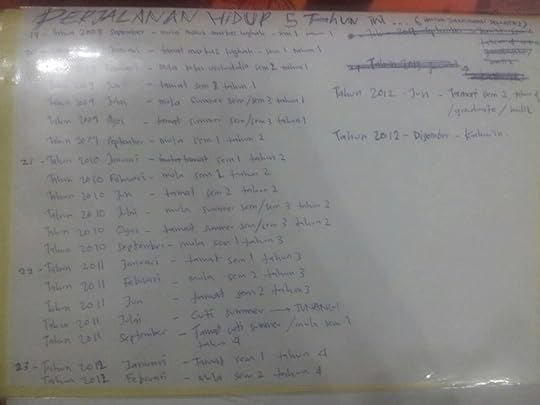 PERJALANAN HIDUP 5 TAHUN INI...
19 - Tahun 2008 September - mula masuk markas lughah - sem 1 tahun 1
Januari - tamat markas lughah - sem 1 tahun 1
mula sem 2 tahun 1
Tahun 2009 Jun - tamat sem 2 tahun 1
Tahun 2009 Julai - mula summer sem/sem 3 tahun 1
Tahun 2009 Ogos - tamat summer sem/sem 3 tahun 1
Tahun 2009 September - mula sem 1 tahun 2
21 - Tahun 2010 Januari - tamat sem 1 tahun 2
Tahun 2010 Februari - mula sem 2 tahun 2
Tahun 2010 Jun - tamat sem 2 tahun 2
Tahun 2010 Julai - mula summer sem/sem 3 tahun 2
Tahun 2010 Ogos - tamat summer sem/sem 3 tahun 2
Tahun 2010 September - mula sem 1 tahun 3
22 - Tahun 2011 Januari - tamat sem 1 tahun 3
Tahun 2011 Februari - mula sem 2 tahun 3
Tahun 2011 Jun - tamat sem 2 tahun 3
Tahun 2011 Julai - Cuti summer → TUNANG
Tahun 2011 September - Tamat cuti summer / mula sem 1
tahun 4
23 - Tahun 2012 Januari - Tamat sem 1 tahun 4
Tahun 2012 Februari - Mula sem 2 tahun 4
Tahun 2012 - Jun - Tamat sem 2, tahun 4
/graduate/
Tahun 2012 - Disember - Kahwin.